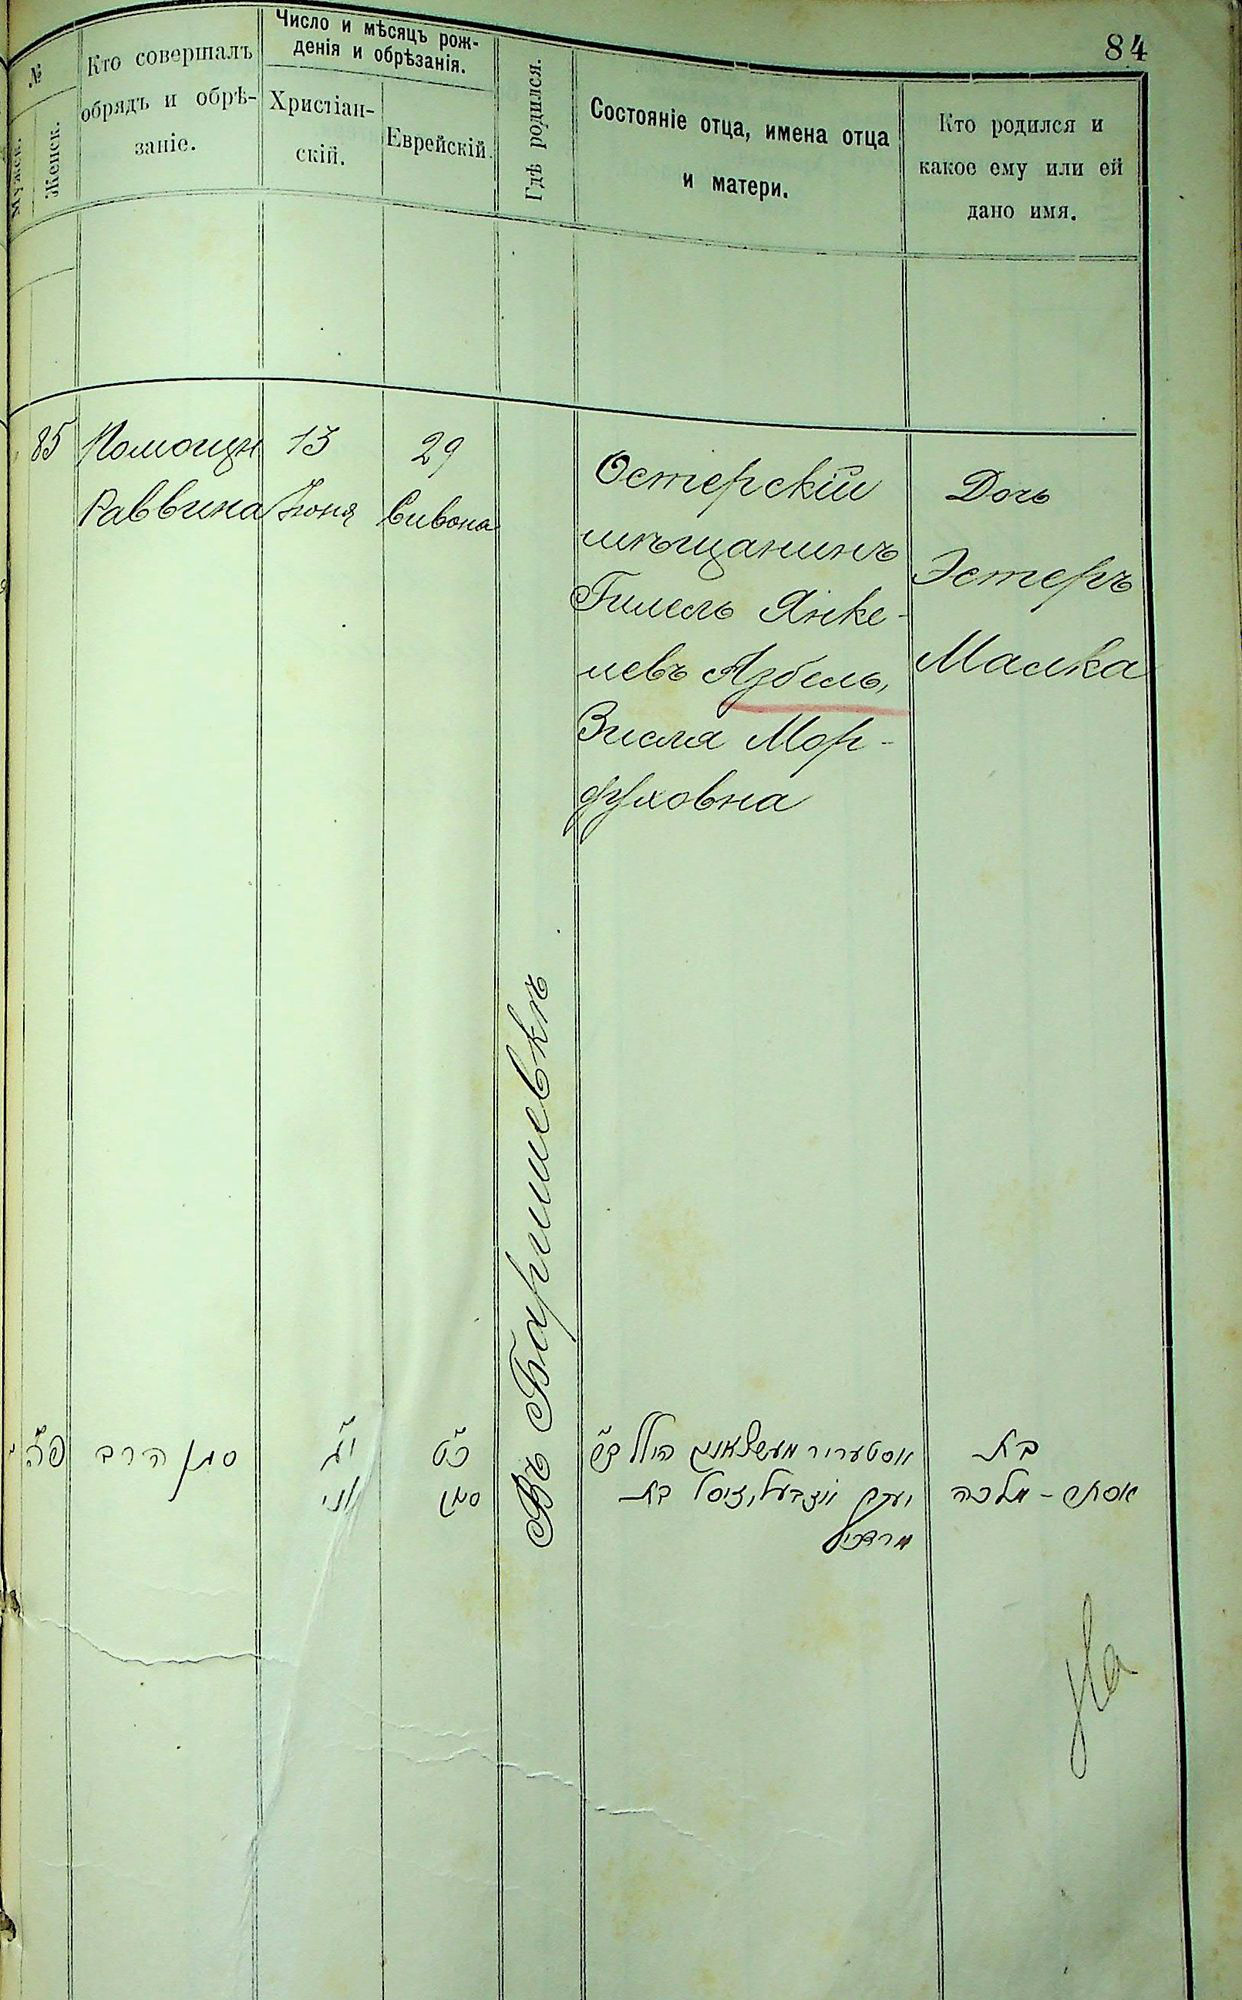 84
№
Мужск.
Женск.
Кто совершалъ
обрядъ и обрѣ-
заніе.
Число и мѣсяцъ рож-
денія и обрѣзанія.
Христіан-
скій.
Еврейскій.
Гдѣ родился.
Состояніе отца, имена отца
и матери.
Кто родился и
какое ему или ей
дано имя.
85
Помощн
Раввина
13
Іюня
29
Сивона
Въ Барышевкѣ
Остерскій
мѣщанинъ
Гилель Янке-
левъ Азбель,
Зисля Мор-
духовна
Дочь
Эстеръ
Малка
פ״ה
סגן הרב
י״ג
יוני
כ״ט
סיון
הילל ב״ר
יעקב אזבעל, זיסל בת
מרדכי
בת
אסתר - מלכה